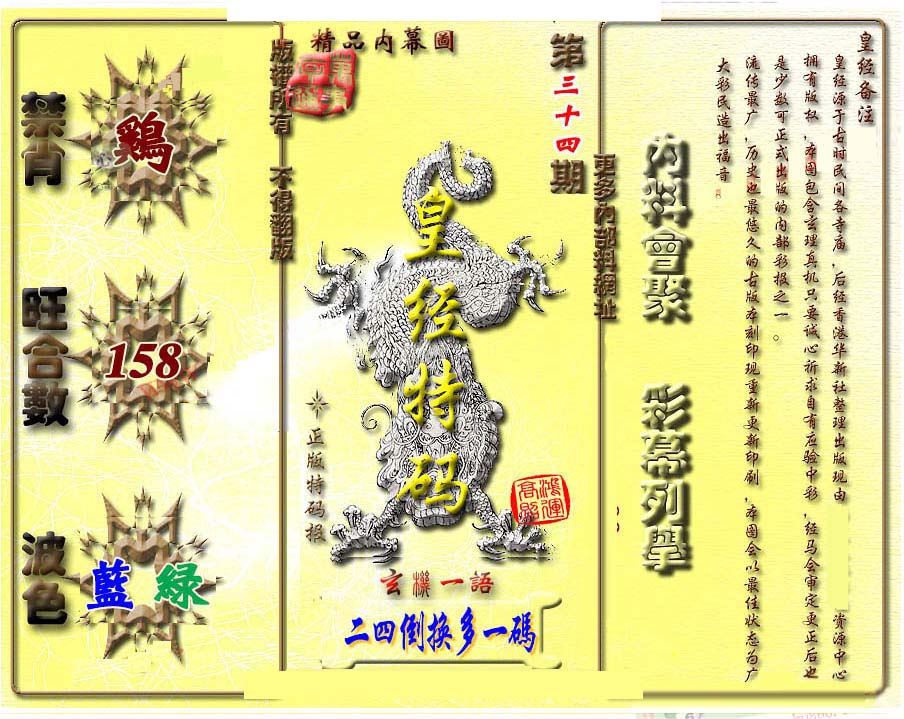 精品內幕圖
第三十四期
版權所有 不得翻版
更多內部料網址
皇经特码
正版特码报
鴻運高照
玄機一語
二四倒換多一碼
禁肖
鷄
旺合數
158
波色
藍 緑
內料會聚
彩幕列舉
皇经备注
皇经源于古时民间各寺庙，后经香港华新社整理出版现由 资源中心
拥有版权，本图包含玄理真机只要诚心祈求自有应验中彩，经马会审定更正后也
是少数可正式出版的内部彩报之一。
流传最广，历史也最悠久的古版本刻印现重新更新印刷，本图会以最佳状态为广
大彩民造出福音